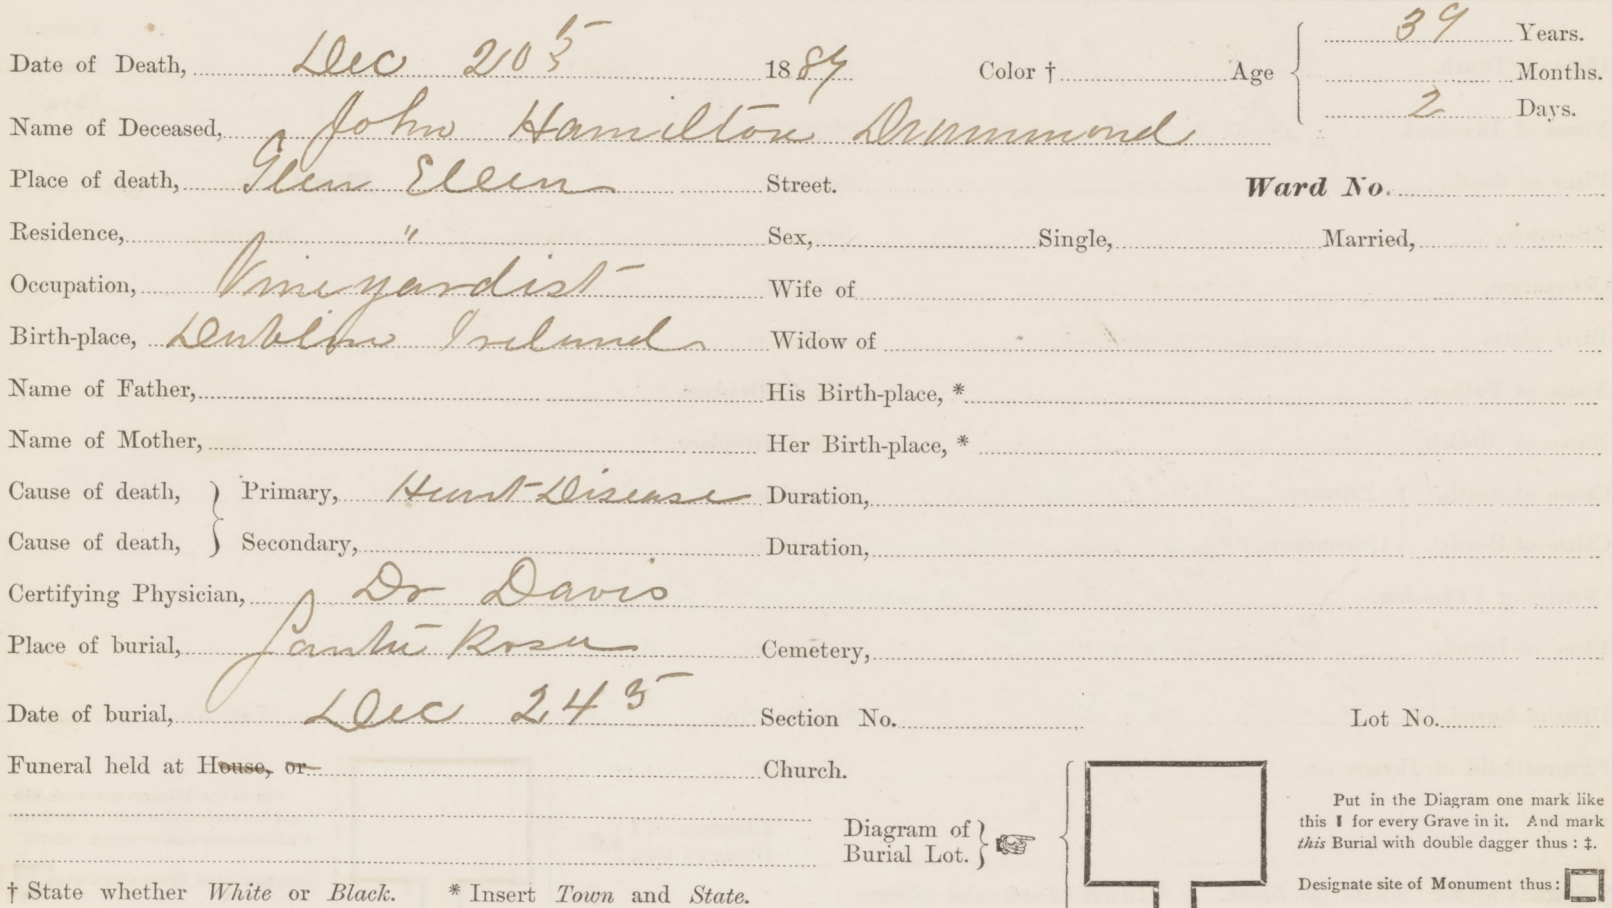 39 Years.
Date of Death, Dec 20 5 1889 Color † Age Months.
2 Days.
Name of Deceased, John Hamilton Drummond
Place of death, Glen Ellen Street. Ward No.
Residence, " Sex, Single, Married,
Occupation, Vineyardist Wife of
Birth-place, Dublin Ireland Widow of
Name of Father, His Birth-place, *
Name of Mother, Her Birth-place, *
Cause of death, } Primary, Heart Disease Duration,
Cause of death, } Secondary, Duration,
Certifying Physician, Dr Davis
Place of burial, Santa Rosa Cemetery,
Date of burial, Dec 24 5 Section No. Lot No.
Funeral held at House, or Church.
Diagram of
Burial Lot.
Put in the Diagram one mark like
this I for every Grave in it. And mark
this Burial with double dagger thus : ‡.
Designate site of Monument thus :
† State whether White or Black. * Insert Town and State.